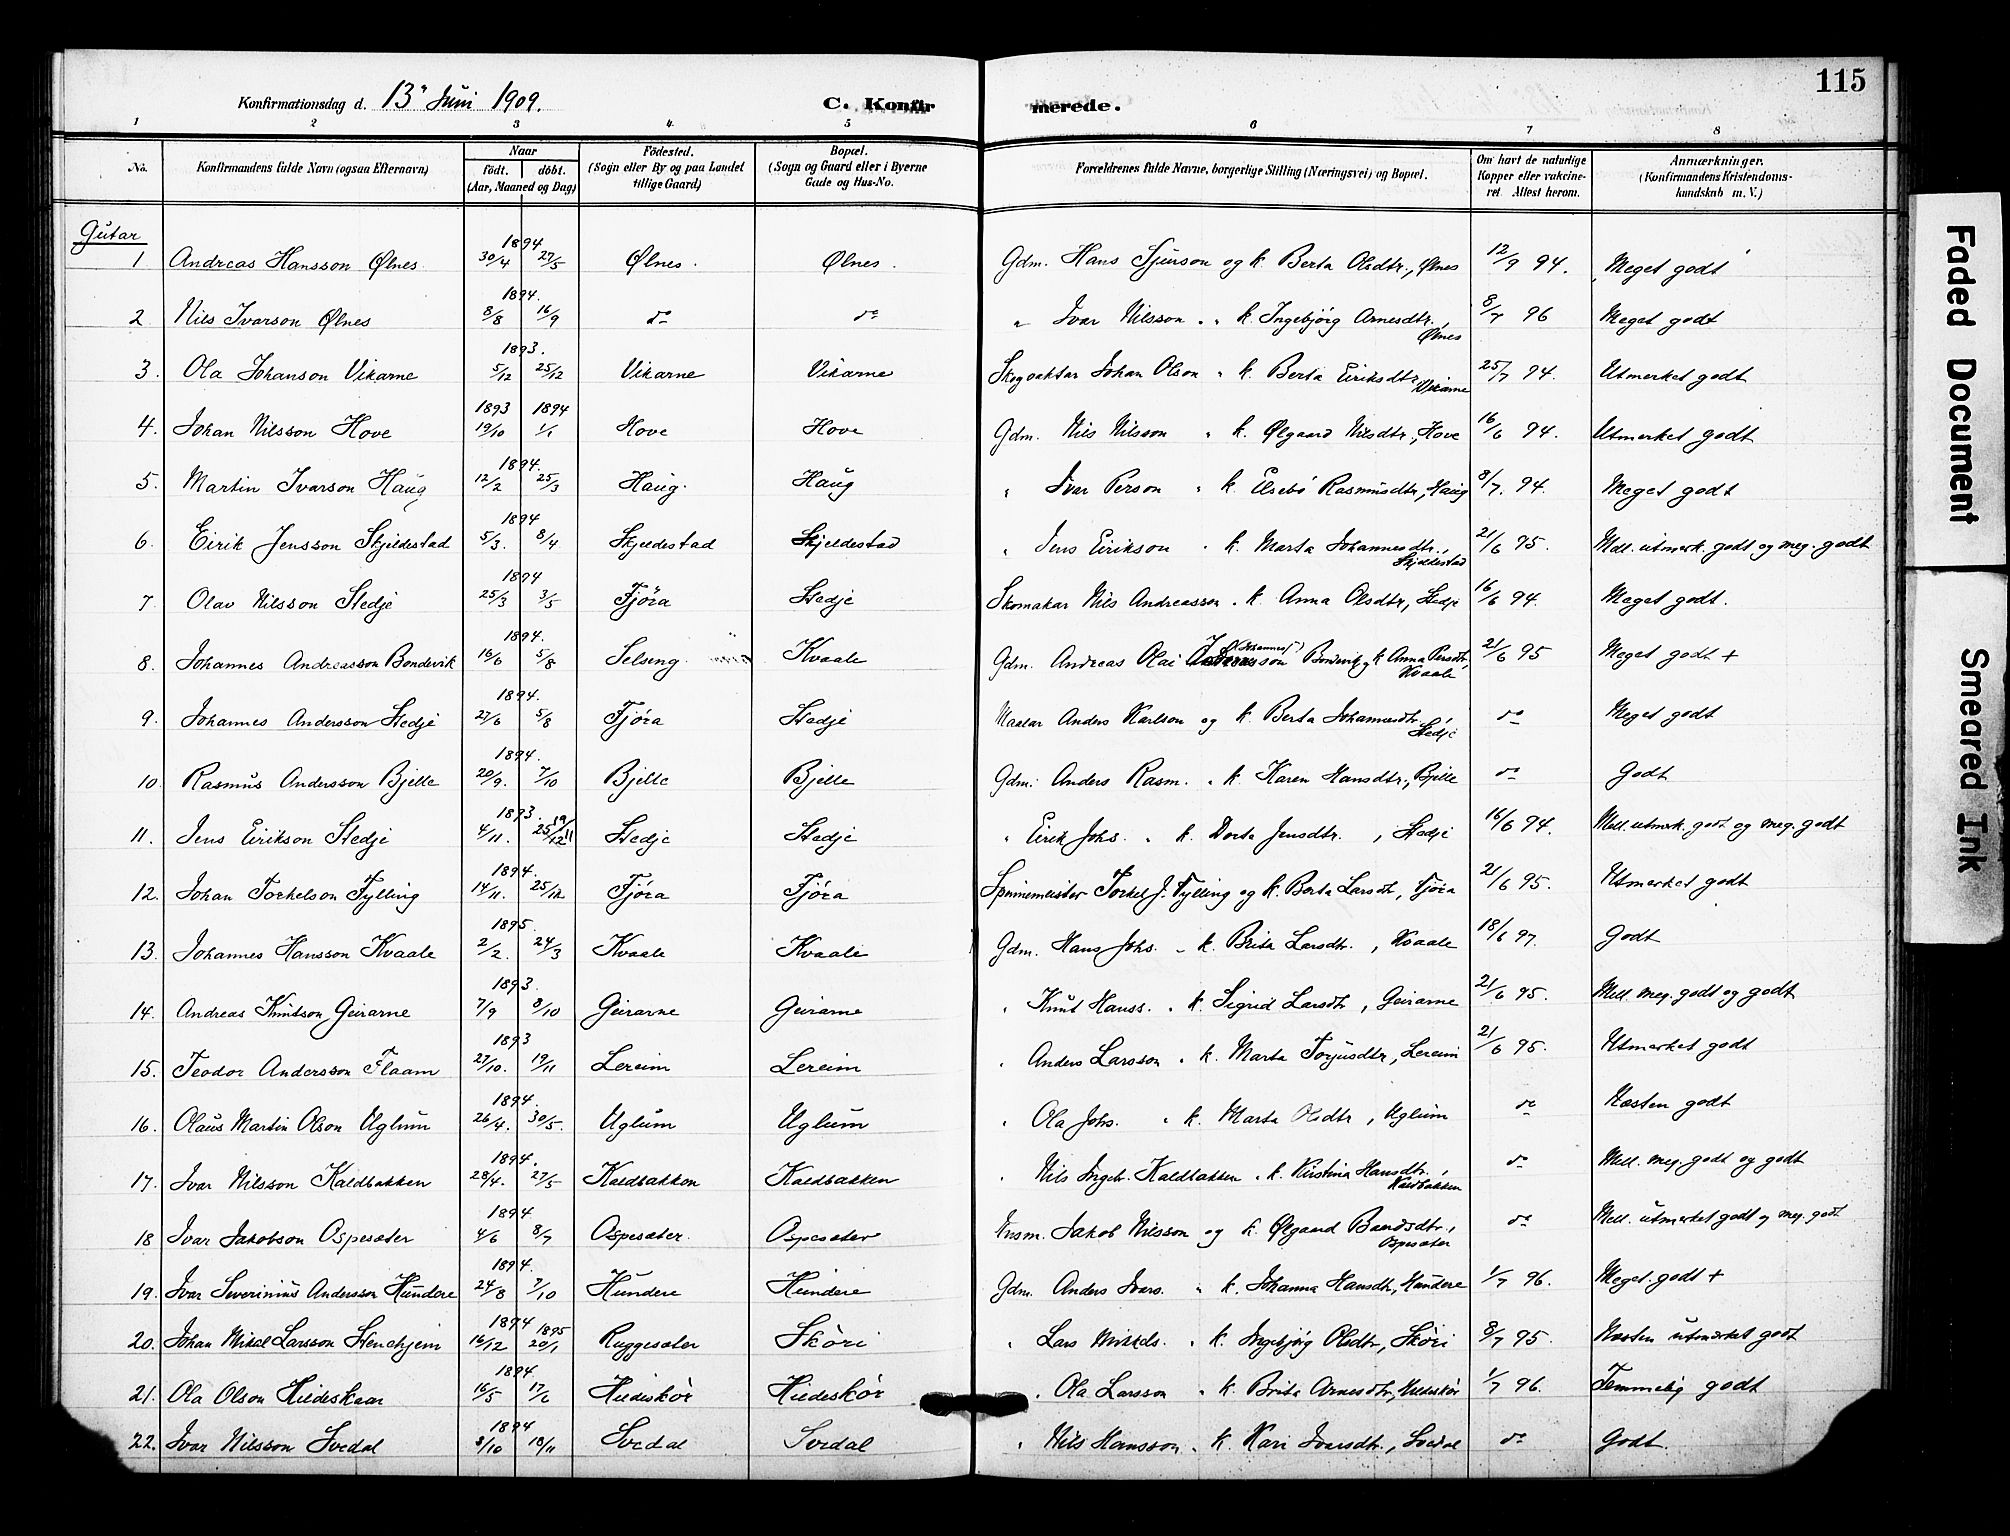 115
Konfirmationsdag d. 13' Juni 1909. C. Konfir merede.
1 2 3 4. 5 6 7 8
No. Konfirmandens fulde Navn (ogsaa Efternavn) Naar født. døbt. (Aar, Maaned og Dag) Fødested. (Sogn eller By og paa Landet tillige Gaard) Bopæl. (Sogn og Gaard eller i Byerne Gade og Hus-No. Forældrenes fulde Navne, borgerlige Stilling (Næringsvei) og Bopæl. Om havt de naturlige Kopper eller vakcineret Attest herom. Anmærkninger. (Konfirmandens Kristendomskundskab m. V.)
Gutar
1 Andreas Hansson Ølnes 1894 30/4 27/5 Ølnes. Ølnes. Gdm. Hans Sjurson og k. Berta Olsdtr., Ølnes 12/9 94. Meget godt
2 Nils Ivarson Ølnes 1894. 8/8 16/9 do do " Ivar Nilsson " k. Ingebjørg Arnesdtr., Ølnes 8/7 96 Meget godt
3. Ola Johanson Vikarne 1893. 5/12 25/12 Vikarne Vikarne Skogvaktar Johan Olson " k. Berta Eiriksdtr, Vikarne 25/7 94. Utmerket godt
4. Johan Nilsson Hove 1893 1894 19/10 1/1 Hove Hove Gdm. Nils Nilsson " k. Ølgaard Nilsdtr., Hove 16/6 94. Utmerket godt
5. Martin Ivarson Haug 1894. 12/2 25/3 Haug. Haug " Ivar Person " k. Elsebø Rasmusdtr, Haug 8/7. 94. Meget godt
6. Eirik Jensson Skjeldestad 1894 5/3. 8/4 Skjeldestad Skjeldestad " Jens Eirikson " k. Marta Johannesdtr., Skjeldestad 21/6 95. Mell. utmerk. godt og meg. godt
7. Olav Nilsson Stedje 1894 25/3 3/5 Fjøra Stedje Skomakar Nils Andreasson " k. Anna Olsdtr, Stedje 16/6 94. Meget godt.
8. Johannes Andreasson Bondevik 1894. 16/6 5/8 Selseng. Kvaale Gdm. Andreas Olai (Johannes) Bondevik og k Anna Persdtr, Kvaale 21/6 95 Meget godt +
9. Johannes Andersson Stedje 1894. 27/6 5/8 Fjøra Stedje Maalar Anders Karlson og k. Berta Johannesdtr., Stedje do Meget godt
10. Rasmus Andersson Bjelle 1894. 20/9. 7/10 Bjelle Bjelle Gdm. Anders Rasm. " k. Karen Hansdtr., Bjelle do Godt
11. Jens Eirikson Stedje 1893. 4/11. 25/12 19/11 Stedje Stedje " Eirik Johs. " k. Dorta Jensdtr., Stedje 16/6 94. Mell. utmerk. godt og meg. godt
12. Johan Torkelson Fylling 1894. 14/11. 25/12 Fjøra Fjøra Spinnemeister Torkel J. Fylling og k. Berta Larsdtr, Fjøra 21/6 95. Utmerket godt
13. Johannes Hansson Kvaale 1895. 2/2. 24/3 Kvaale Kvaale Gdm. Hans Johs. " k. Brita Larsdtr., Kvaale 18/6 97. Godt
14. Andreas Knutson Geirarne 1893. 7/9 8/10 Geirarne Geirarne " Knut Hanss. " k. Sigrid Larsdtr, Geirarne 21/6 95. Mell. meg. godt og godt
15. Teodor Andersson Flaam 1893 27/10. 19/11 Lereim Lereim " Anders Larsson " k. Marta Torjusdtr, Lereim 21/6 95. Utmerket godt
16. Olaus Martin Olson Uglum 1894. 26/4. 30/5. Uglum Uglum " Ola Johs. " k. Marta Olsdtr, Uglum do Næsten godt
17. Ivar Nilsson Kaldbakken 1894. 28/4. 27/5 Kaldbakken Kaldbakken " Nils Ingebr. Kaldbakken " k. Kristina Hansdtr., Kaldbakken do Mell. meg. godt og godt
18 Ivar Jakobson Ospesæter 1894 4/6 8/7 Ospesæter. Ospesæter Husm. Jakob Nilsson og k. Ølgaard Baardsdtr., Ospesæter do Mell. utmerket godt og meg. godt
19. Ivar Severinius Andersson Hundere 1894. 24/8 7/10 Hundere Hundere Gdm. Anders Ivars. " k. Johanna Hansdtr, Hundere 1/7 96. Meget godt +
20. Johan Mikal Larsson Stenehjem 1894 1895 16/12 20/1 Ruggesæter Skøri " Lars Mikkels. " k. Ingebjørg Olsdtr, Skøri 8/7 95. Næsten utmerket godt
21. Ola Olson Hildeskaar 1894 16/5 17/6 Hildeskør Hildeskør " Ola Larsson " k. Brita Arnesdtr, Hildeskør 1/7 96. Temmelig godt
22. Ivar Nilsson Svedal 1894 8/10 18/11 Svedal Svedal " Nils Hansson " k. Kari Ivarsdtr., Svedal do Godt.
Faded Document
Smeared Ink